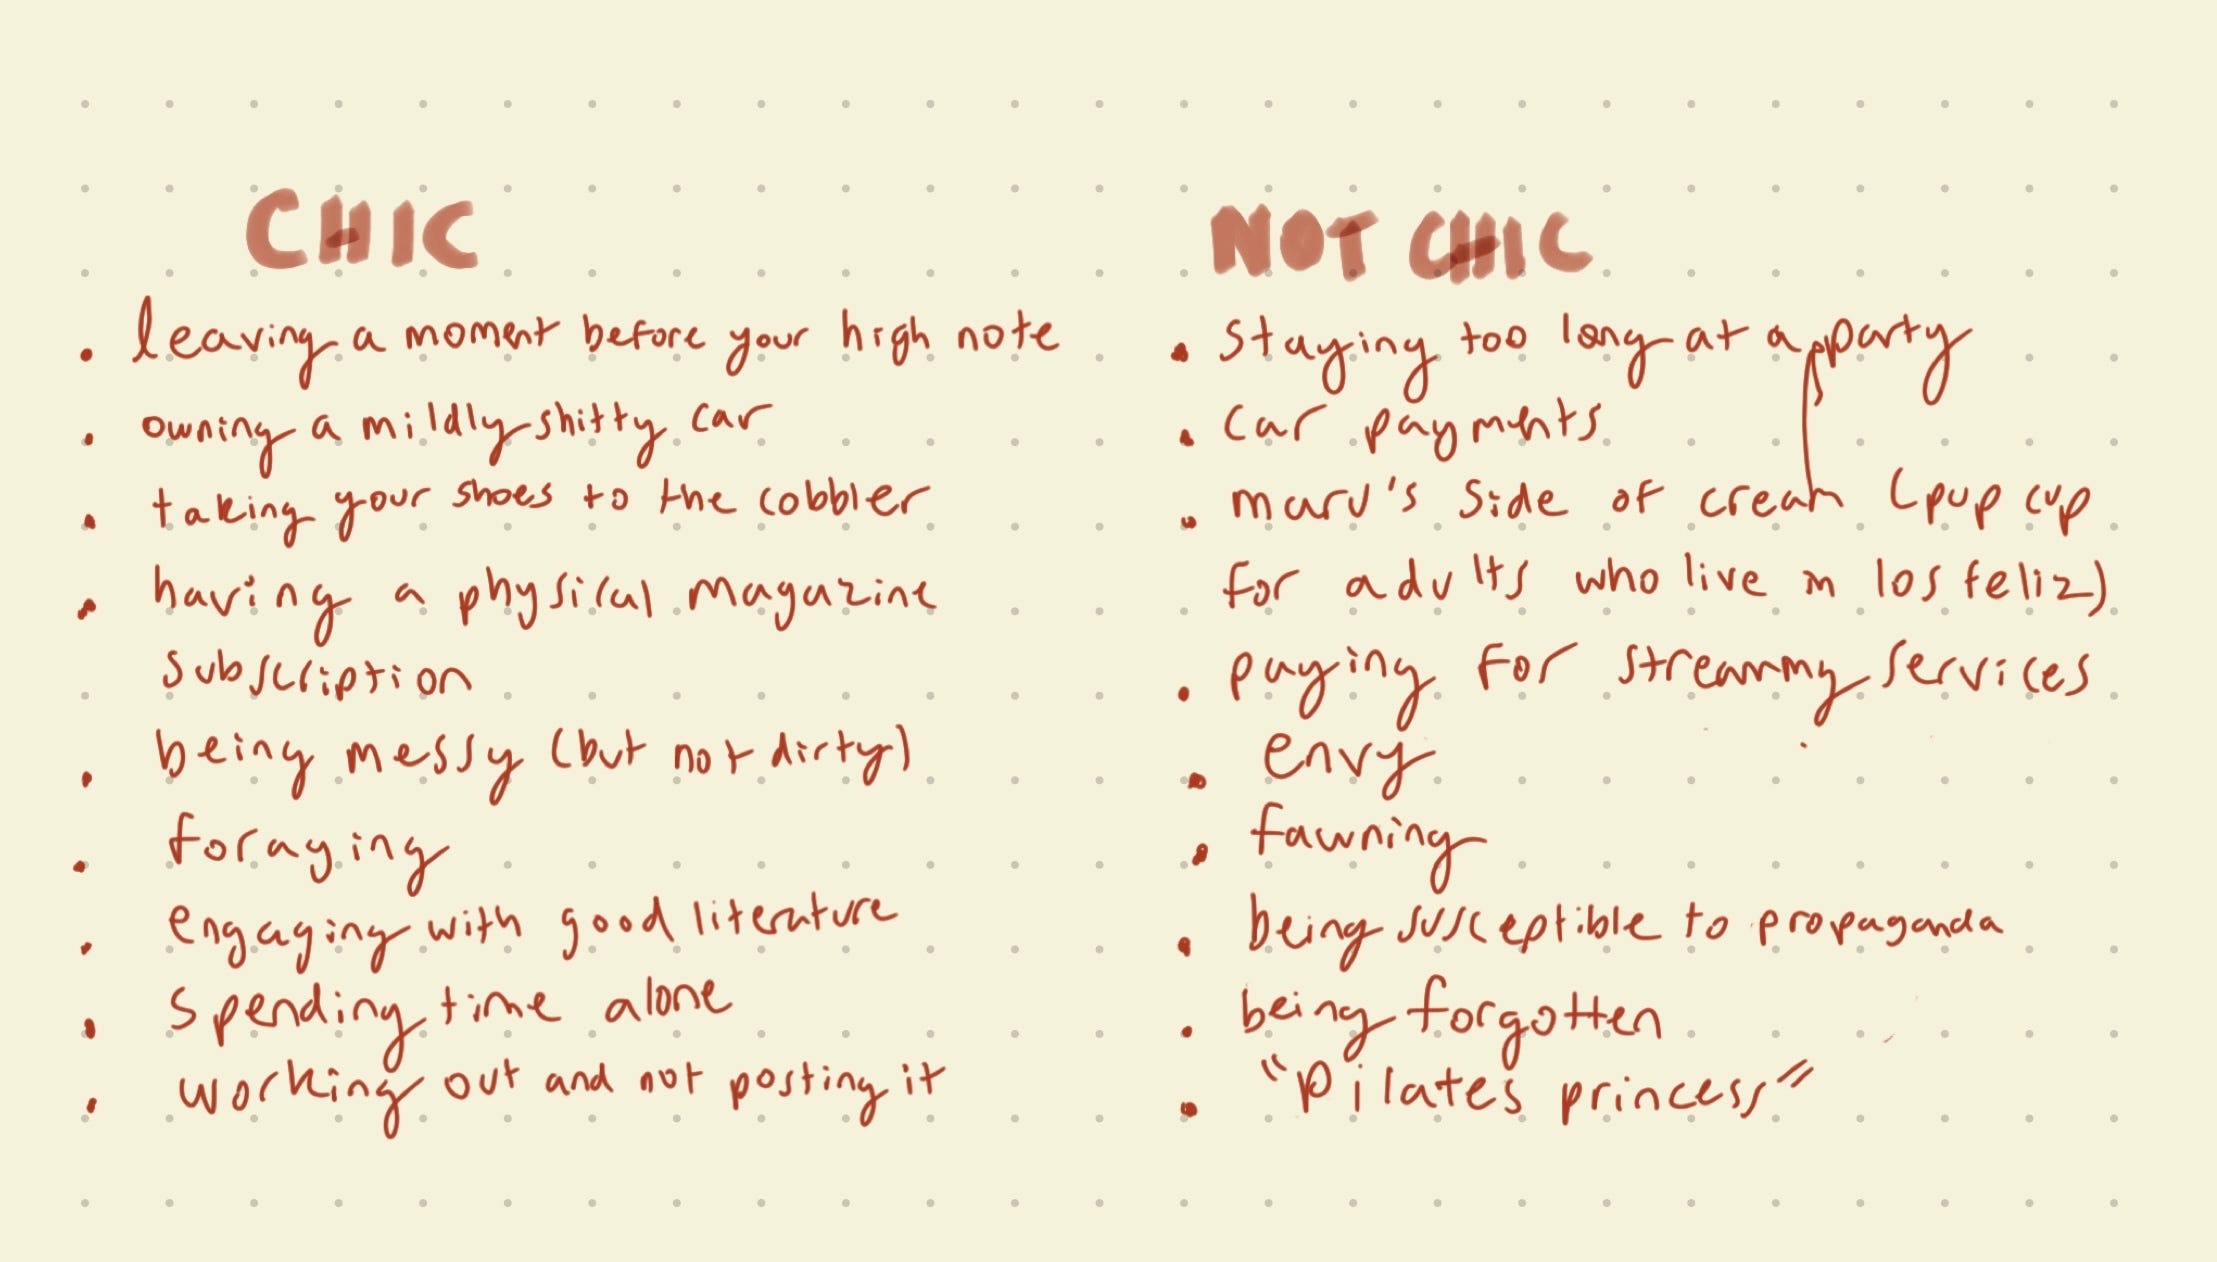 CHIC
• leaving a moment before your high note
• owning a mildly shitty car
• taking your shoes to the cobbler
• having a physical magazine
subscription
• being messy (but not dirty)
• foraging
• engaging with good literature
• spending time alone
• working out and not posting it
NOT CHIC
• staying too long at a party
• car payments
• maru's side of cream (pup cup
for adults who live in los feliz)
• paying for streaming services
• envy
• fawning
• being susceptible to propaganda
• being forgotten
• "pilates princess"